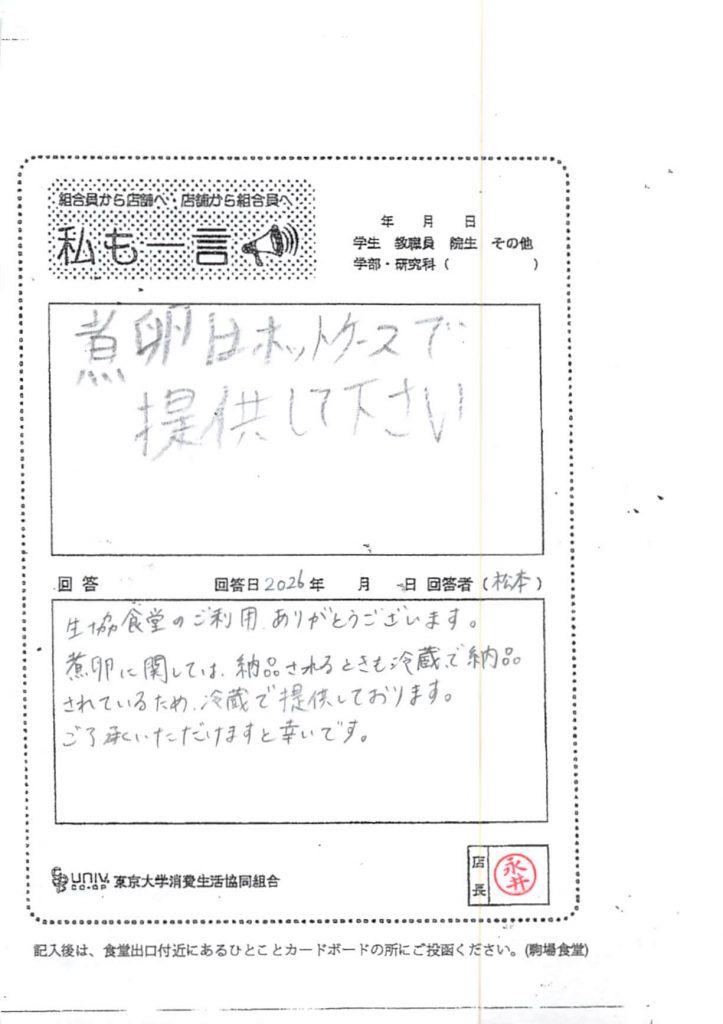 組合員から店舗へ・店舗から組合員へ
私も一言
年 月 日
学生 教職員 院生 その他
学部・研究科 ( )
煮卵はホットケースで
提供して下さい
回答 回答日2026年 月 日 回答者 (松本)
生協食堂のご利用、ありがとうございます。
煮卵に関しては、納品されるときも冷蔵で納品
されているため、冷蔵で提供しております。
ご了承いただけますと幸いです。
UNIV. CO-OP 東京大学消費生活協同組合
店長 永井
記入後は、食堂出口付近にあるひとことカードボードの所にご投函ください。(駒場食堂)